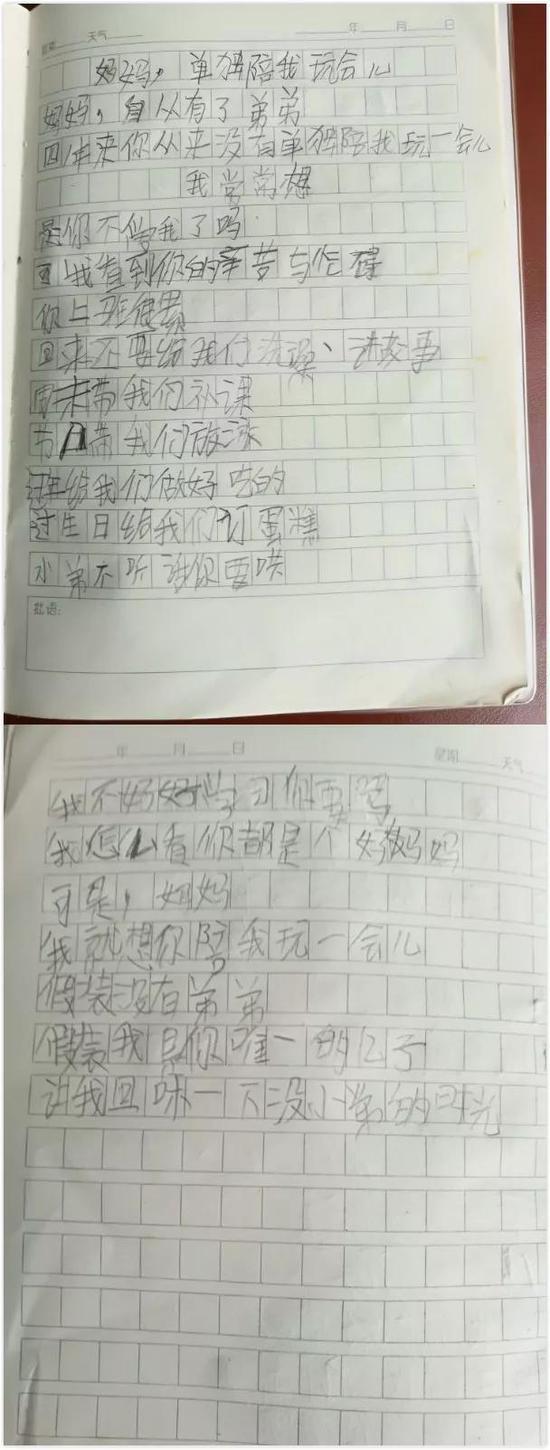 星期 天气 年 月 日
妈妈,单独陪我玩会儿
妈妈,自从有了弟弟
四年来你从来没有单独陪我玩一会儿
我常常想
是你不爱我了吗
可我看到你的辛苦与忙碌
你上班很累
回来还要给我们洗澡、讲故事
周末带我们补课
节日带我们放松
过年给我们做好吃的
过生日给我们订蛋糕
小弟不听话你要哄
批语:
年 月 日 星期 天气
我不好好学习你要骂
我怎么看你都是个好妈妈
可是,妈妈
我就想你陪我玩一会儿
假装没有弟弟
假装我是你唯一的儿子
让我回味一下没小弟的时光